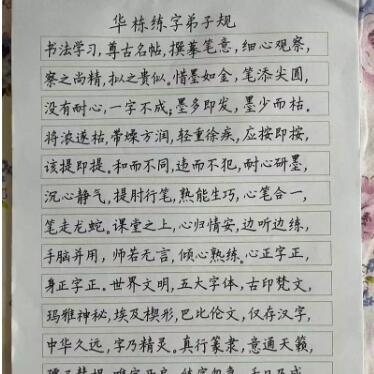 华栋练字弟子规
书法学习,尊古名帖,撰摹笔意,细心观察,
察之尚精,拟之贵似。惜墨如金,笔添尖圆,
没有耐心,一字不成;墨多即发,墨少而枯。
将浓遂枯,带燥方润,轻重徐疾,应按即按,
该提即提。和而不同,违而不犯,耐心研墨,
沉心静气,提肘行笔,熟能生巧,心笔合一,
笔走龙蛇。课堂之上,心归情安,边听边练,
手脑并用,师若无言,倾心熟练。心正字正,
身正字正。世界文明,五大字体,古印梵文,
玛雅神秘,埃及楔形,巴比伦文,仅存汉字,
中华久远,字乃精灵。真行篆隶,意通天籁,